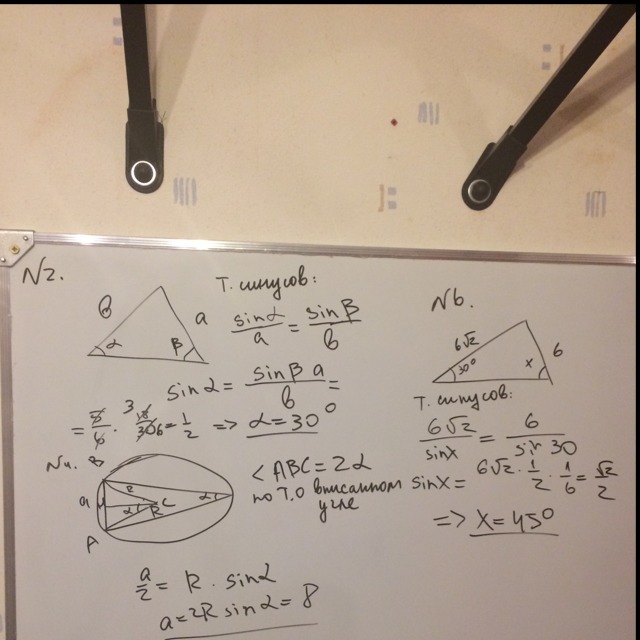 N2.
b a
α β
Т. синусов:
sinα/a = sinβ/b
sinα = sinβ a/b =
= · 3 = 1/2 => α = 30°
N4.
a R α C R α
A
< ABC = 2α
по Т.О вписанном
угле
a/2 = R · sinα
a = 2R sinα = 8
N6.
6√2 30° x 6
Т. синусов:
6√2/sinx = 6/sin 30
sinx = 6√2 · 1/2 · 1/6 = √2/2
=> x = 45°